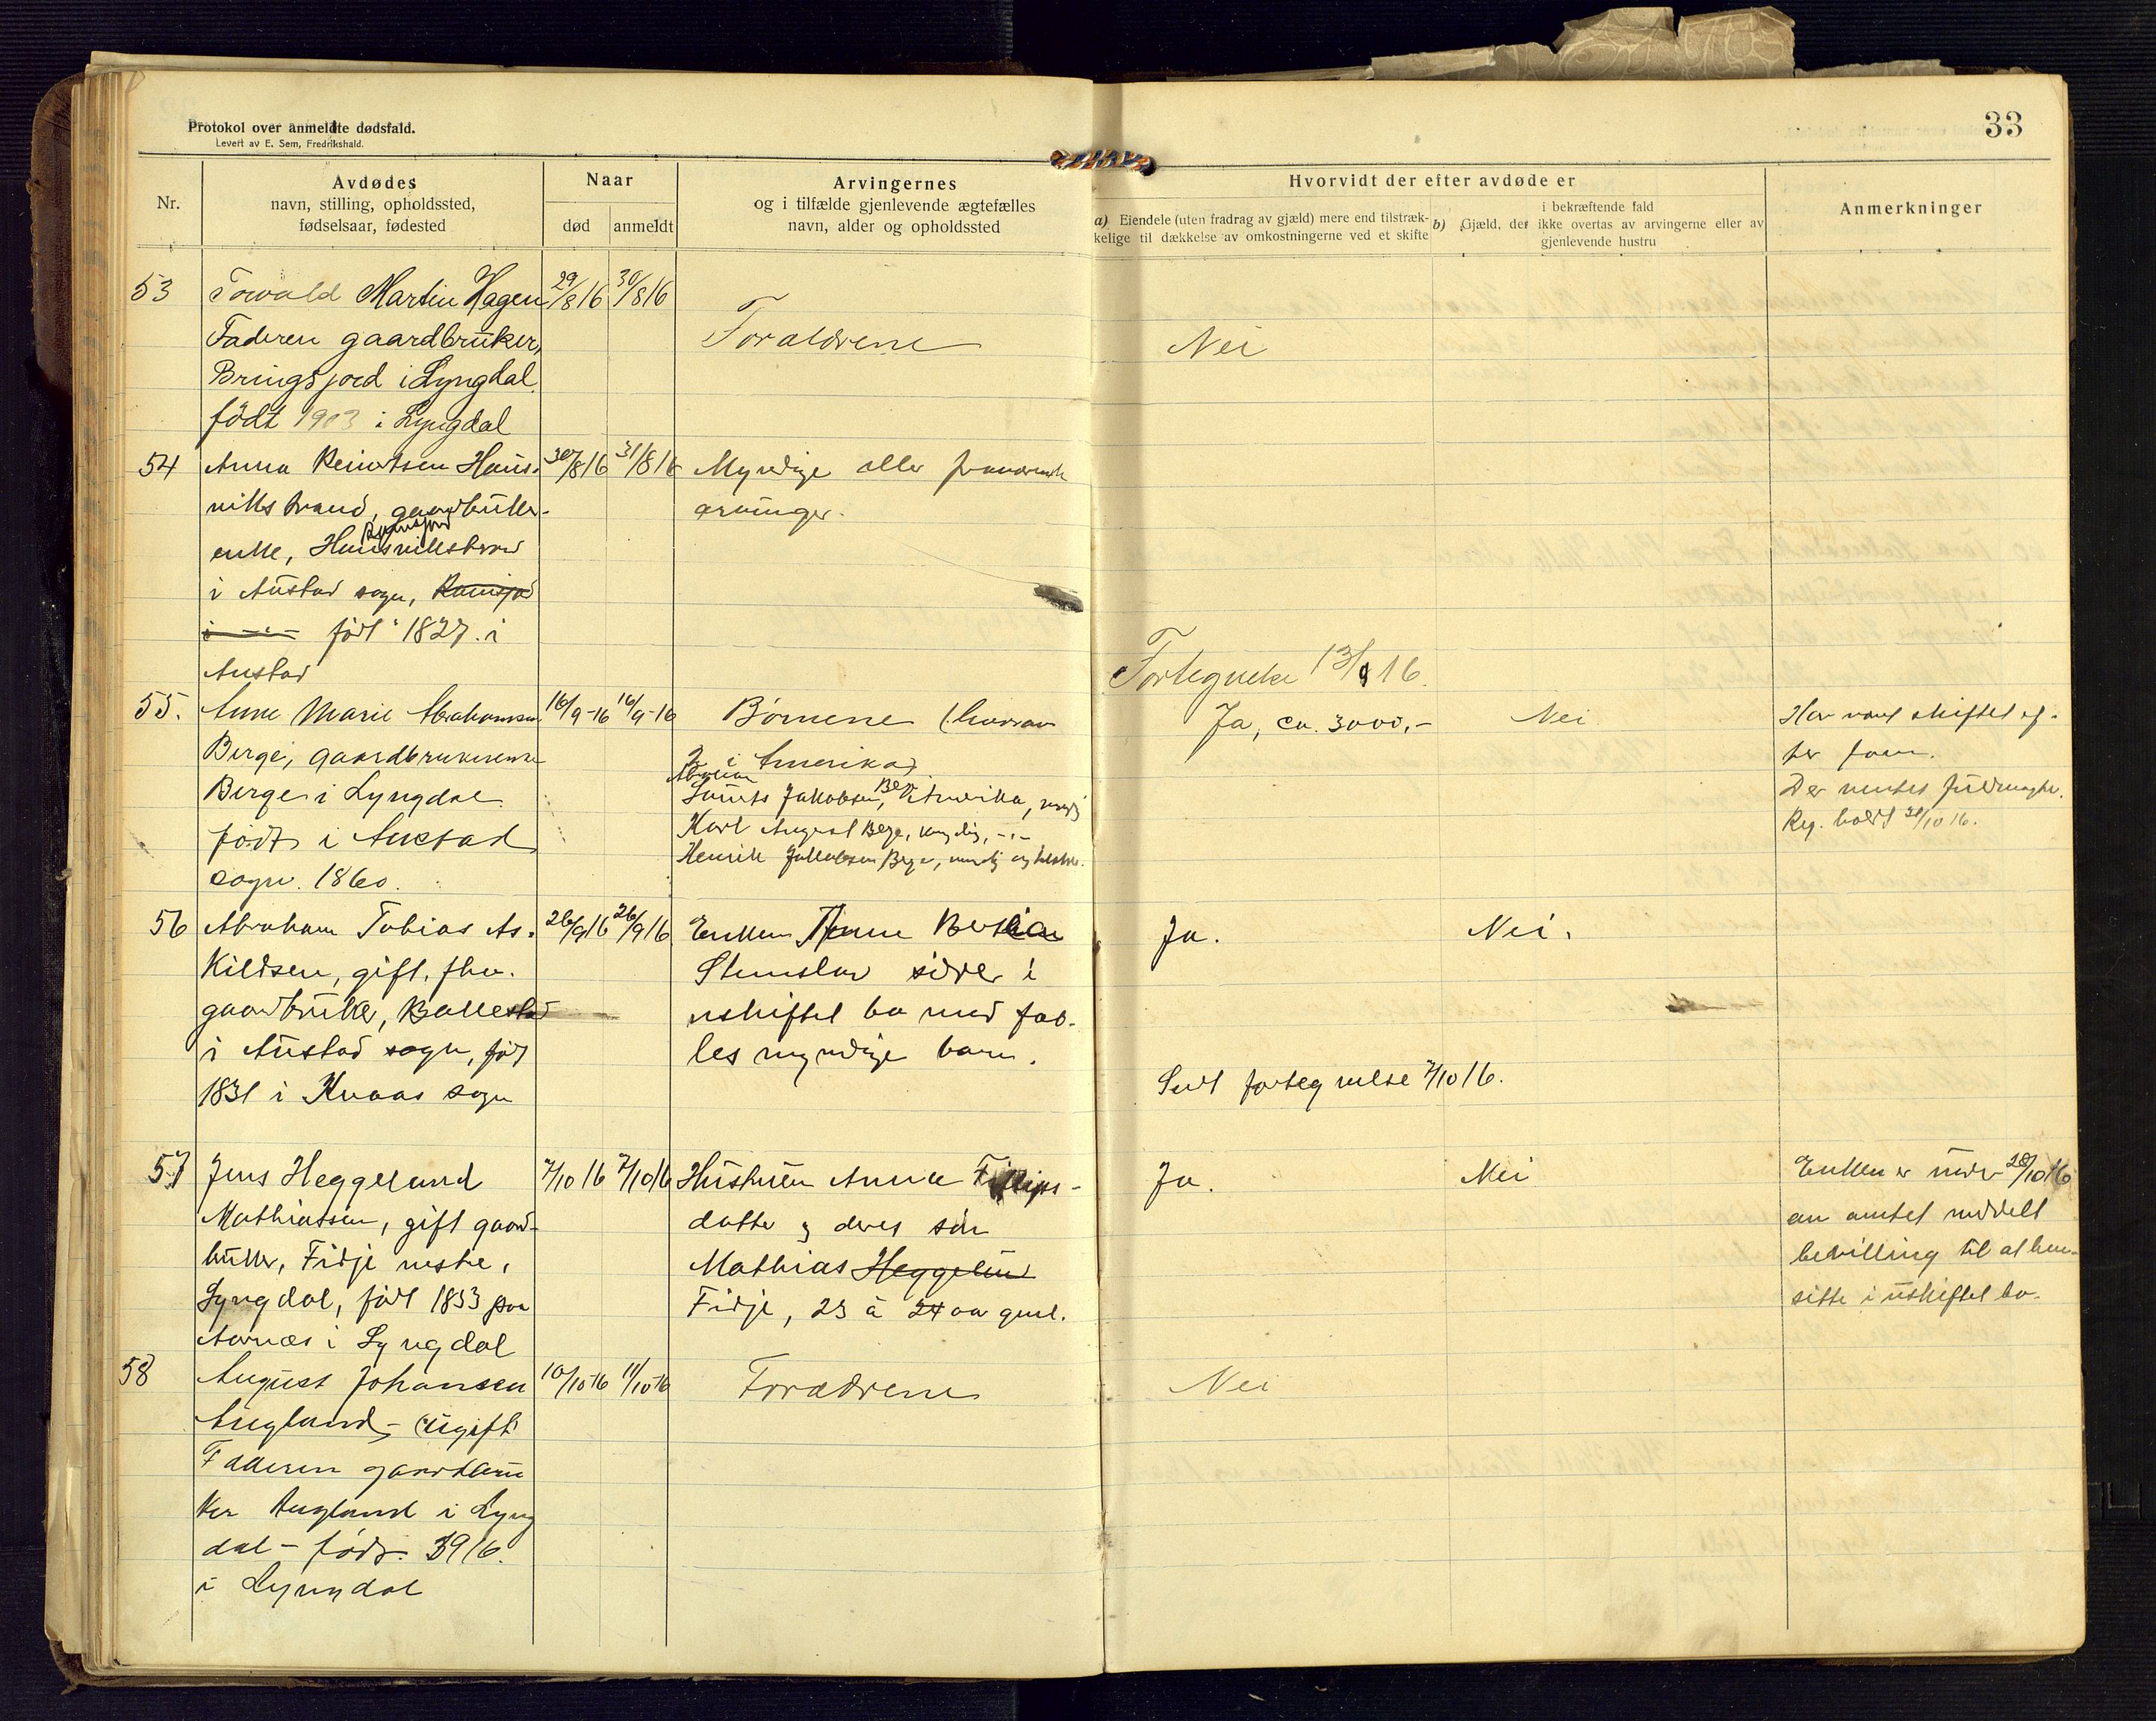 Protokol over anmeldte dødsfald.
Levert av E. Sem, Fredrikshald.
33
Nr.
Avdødes
navn, stilling, opholdssted,
fødselsaar, fødested
Naar
død
anmeldt
Arvingernes
og i tilfælde gjenlevende ægtefælles
navn, alder og opholdssted
Hvorvidt der efter avdøde er
a) Eiendele (uten fradrag av gjæld) mere end tilstræk-
kelige til dækkelse av omkostningerne ved et skifte
b) Gjæld, der i bekræftende fald
ikke overtas av arvingerne eller av
gjenlevende hustru
Anmerkninger
53
Torvald Martin Hagen
Faderen gaardbruker,
Bringsjord i Lyngdal.
født 1903 i Lyngdal
29/8 16
30/8 16
Forældrene
Nei
54
Anna Reinertsen Haus-
vikstrand, gaardbruker-
enke, Hausvikstrand
i Austad sogn,
født 1827. i
Austad
30/8 16
31/8 16
Myndige alle fraværende
arvinger.
Fortegnelse 13/9 16.
55.
Anne Marie Abrahamsen
Berge, gaardbrukerenke
Berge i Lyngdal
født i Austad
sogn. 1860.
16/9-16
16/9-16
Børnene (hvorav
2 i Amerika)
Jakobsen, Berge i Amerika, myndig
Karl August Berge, myndig, -"-
Henrik Jakobsen Berge, myndig
Ja, ca. 3000,-
Nei
Har vært skiftet ef-
ter faren.
Der ventes fuldmagter.
Reg. holdt 31/10 16.
56
Abraham Tobias As-
kildsen, gift, fhv.
gaardbruker, Ballestad
i Austad sogn, født
1831 i Kvaas sogn
26/9 16
26/9 16
Enken Anne Bertine
sidder i
uskiftet bo med fæl-
les myndige barn.
Ja.
Nei.
Sendt fortegnelse 7/10 16.
57
Jens Heggelund
Mathiassen, gift gaard-
bruker, Fidje nedre,
Lyngdal, født 1853 paa
Aarnæs i Lyngdal
7/10 16
7/10 16
Hustruen Anna Fillips-
datter og deres søn
Mathias Heggelund
Fidje, 23 à 24 aar gml.
Ja.
Nei
Enken er under 28/10 16
av amtet meddelt
bevilling til at hen-
sitte i uskiftet bo.
58
August Johansen
Augland - (ugift
Faderen gaardbru
ker Augland i Lyng
dal - født 3/9 16.
i Lyngdal
10/10-16
11/10-16
Forældrene
Nei